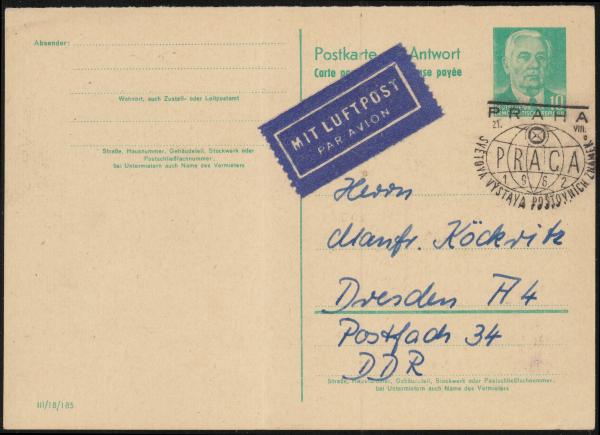 Absender:
Wohnort, auch Zustell- oder Leitpostamt
Straße, Hausnummer, Gebäudeteil, Stockwerk oder
Postschließfachnummer,
bei Untermietern auch Name des Vermieters
III/18/185
Postkarte Antwort
Carte payée
MIT LUFTPOST
PAR AVION
10
PRAHA
21. VIII.
PRAGA
1962
SVĚTOVÁ VÝSTAVA POŠTOVNÍCH ZNÁMEK
Herrn
Manfr. Köckritz
Dresden A4
Postfach 34
DDR
Straße, Hausnummer, Gebäudeteil, Stockwerk oder Postschließfachnummer,
bei Untermietern auch Name des Vermieters